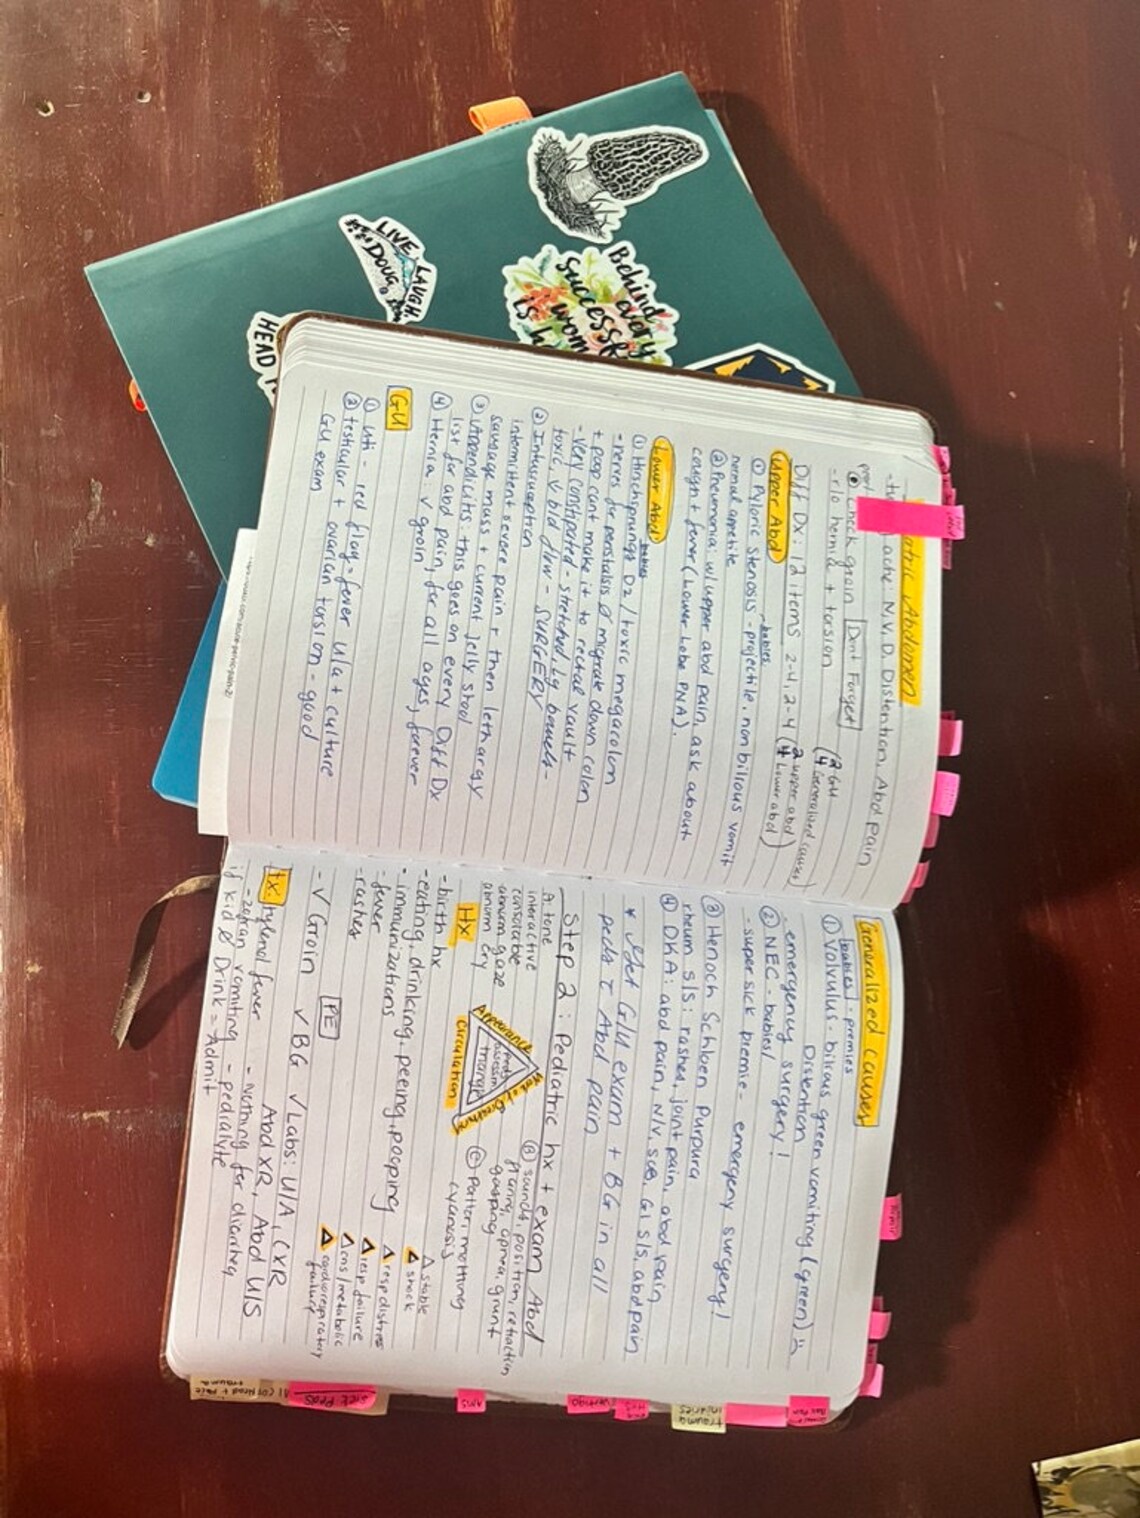 LIVE LAUGH
DOUG
HEAD
Behind
every
successf
wom
is h
atric Abdomen
ache: N.V.D. Distention, Abd pain
check groin Don't Forget
- r/o hernia + torsion
(2 GU
4 Generalized causes)
Diff Dx: 12 items 2-4, 2-4 (2 upper abd)
4 lower abd)
Upper Abd
babies
① Pyloric Stenosis - projectile, nonbilious vomit
normal appetite
② Pneumonia: w/upper abd pain, ask about
cough + fever (Lower Lobe PNA).
Lower Abd
babies
① Hirschsprungs Dz / toxic megacolon
- nerves for peristalsis ∅ migrate down colon
+ poop cant make it to rectal vault
- very constipated - stretched, Lg bowels -
toxic, ↓ bld flow - SURGERY
② Intussusception
intermittent severe pain + then lethargy
sausage mass + current jelly stool
③ Appendicitis this goes on every Diff Dx
list for abd pain, for all ages, forever
④ Hernia, √ groin
GU
① uti - red flag = fever u/a + culture
② testicular + ovarian torsion - good
GU exam
Generalized Causes
babies - premies
① Volvulus - bilious green vomiting (green)
Distention
- emergency surgery!
② NEC - babies/
- super sick premie - emergency surgery!
③ Henoch Schloen Purpura
rheum s/s: rashes, joint pain, abd pain
④ DKA: abd pain, N/V, SOB, GI s/s, abd pain
* Get GU exam + BG in all
peds c̄ Abd pain
Step 2: Pediatric hx + exam Abd
A: tone
interactive
consolable
abnorm gaze
abnorm cry
Appearance
Work of Breathing
Circulation
triangle
Ⓑ sounds, position, retraction
flaring, apnea, grunt
gasping
Ⓒ Pallor, mottling
cyanosis
Hx
- birth hx
- eating, drinking, peeing, pooping
- immunizations
- fever
- rashes
△ stable
△ shock
△ resp distress
△ resp failure
△ cns/metabolic
△ cardiorespiratory
failure
PE
- √ Groin √ BG √ Labs: U/A, CXR
Abd XR, Abd U/S
tx: tylenol fever - nothing for diarrhea
- zofran vomiting - pedialyte
if kid ∅ Drink = Admit
SICK PEDS
AMS
Vertigo
trauma